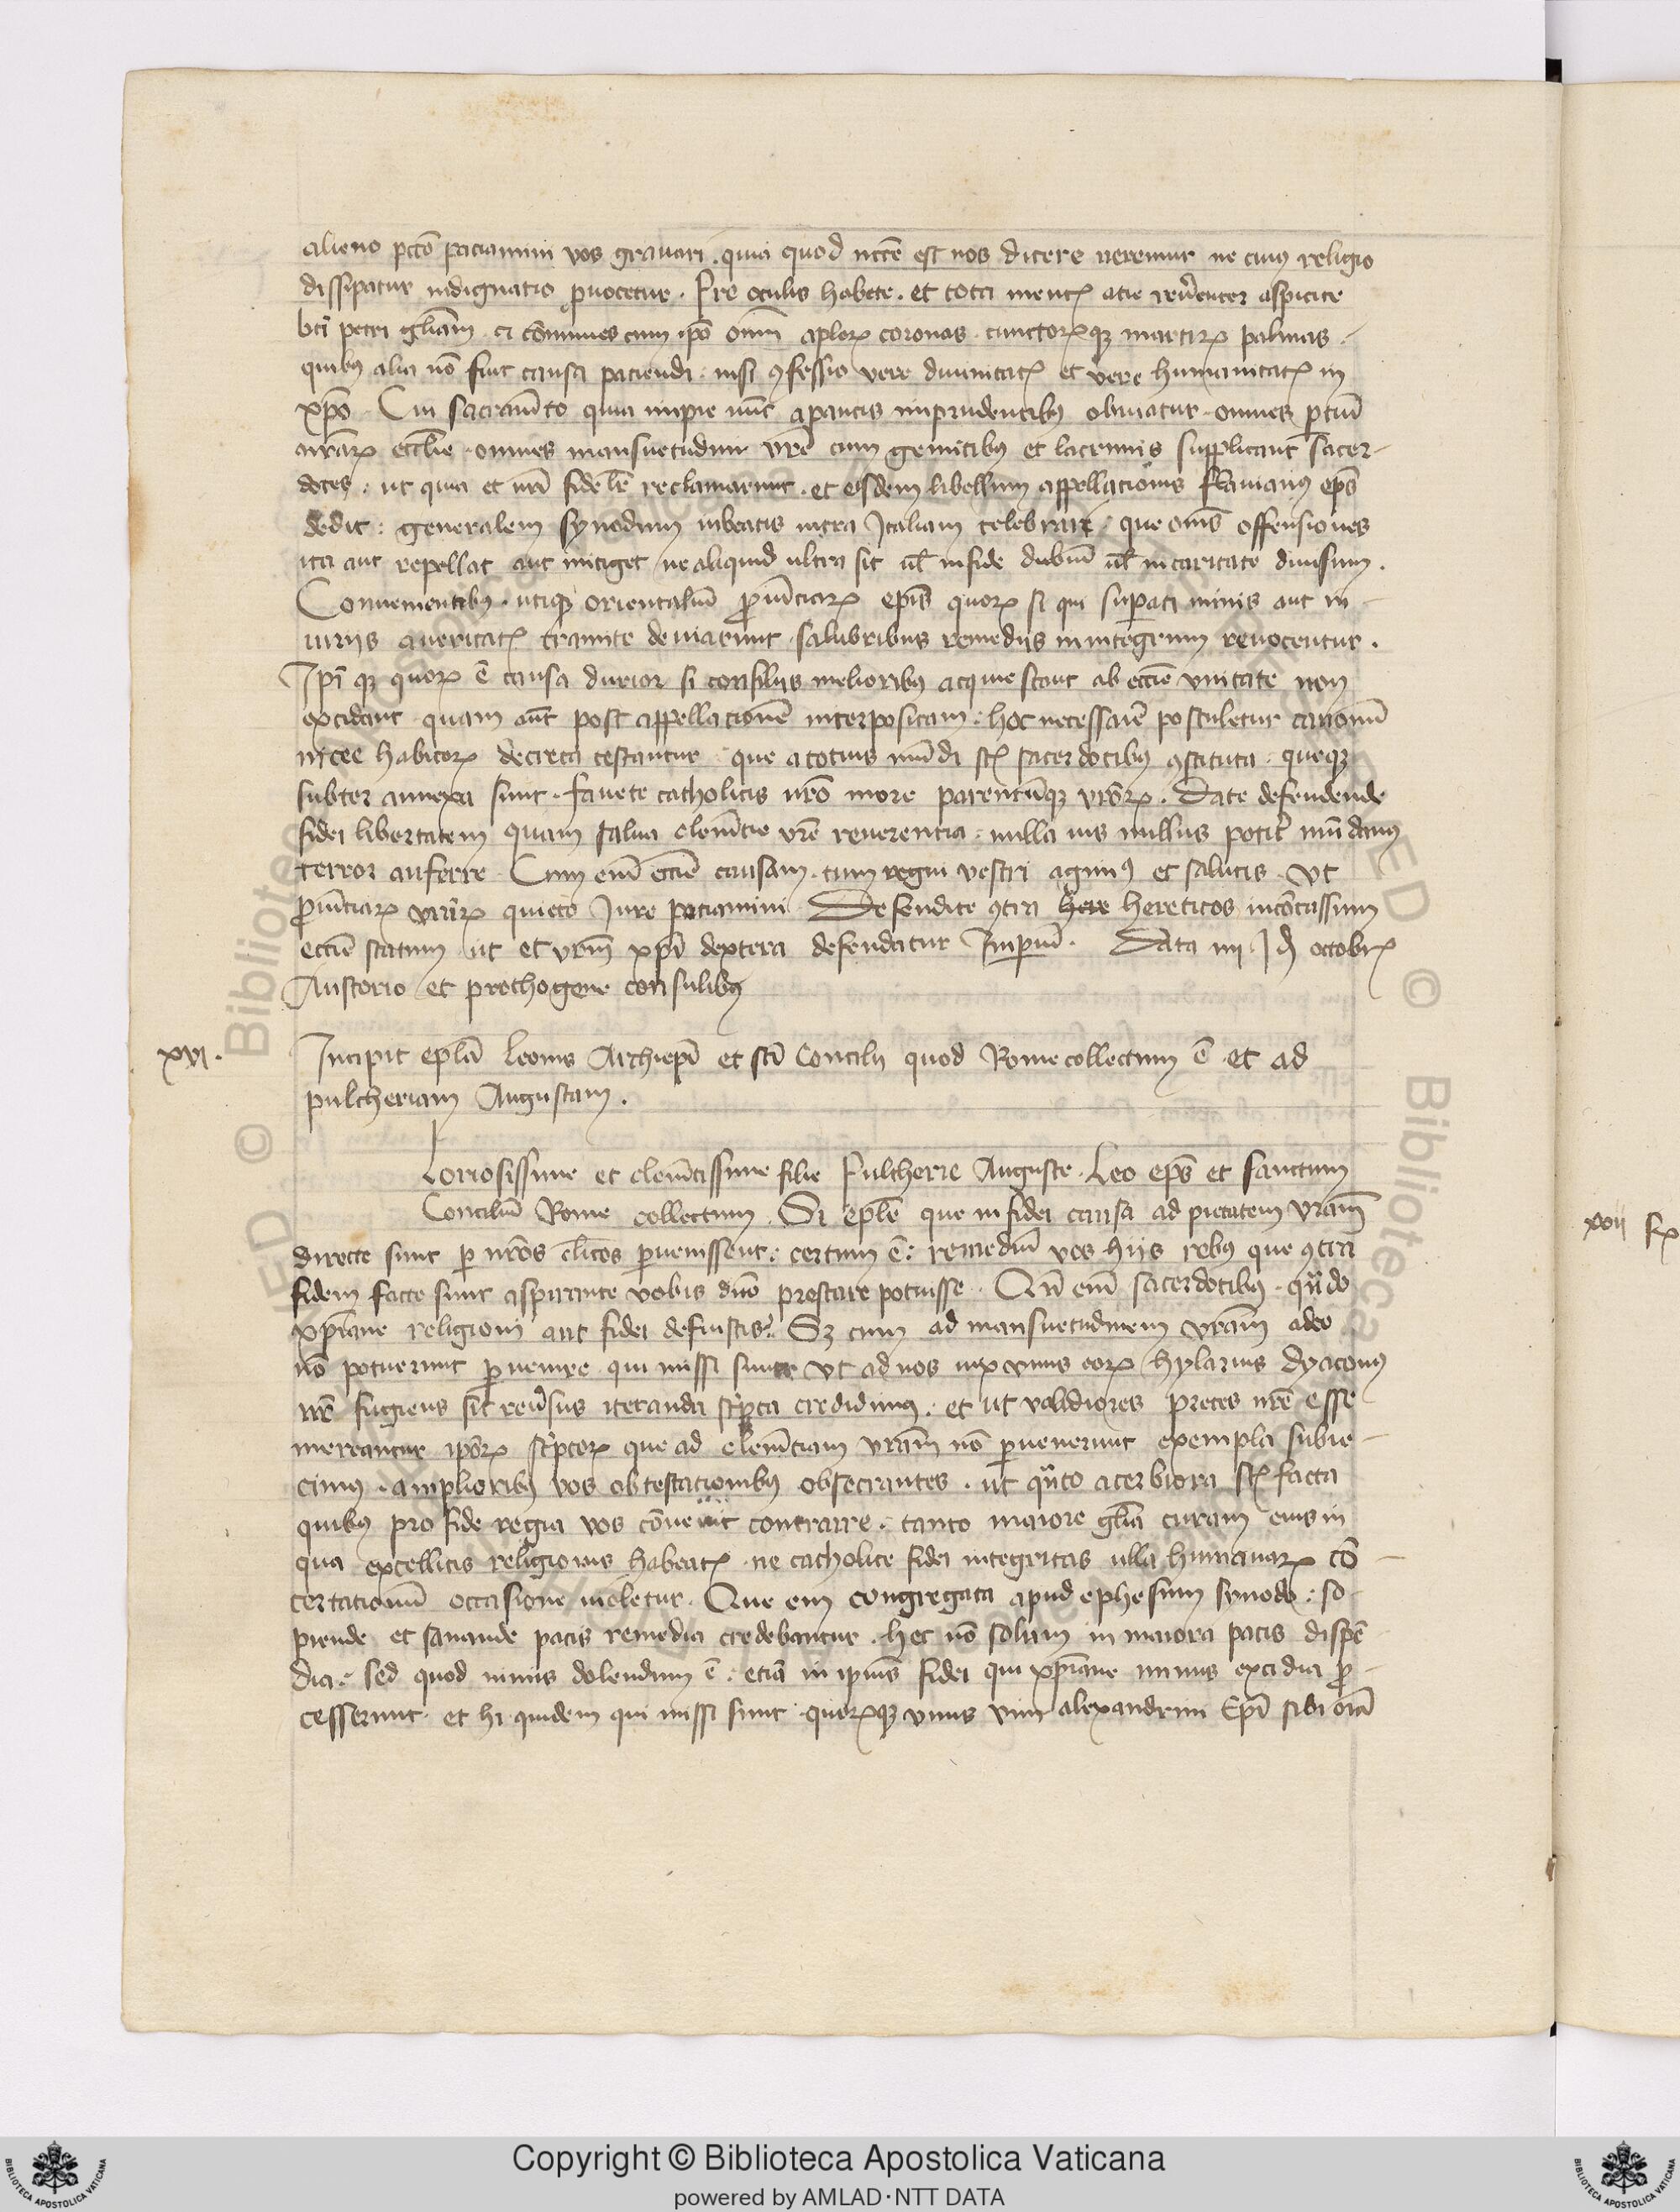 alieno pctō paciamini vos gravari . quia quod nccē est nos dicere veremur ne cuius religio
dissipatur indignatio ꝓvocetur . Pre oculis habete . et tota mentꝭ acie rev̄enter aspicite
bt̄i petri glīam . et cōmunes cum ipō om̄ aplorꝝ coronas . cunctorꝝqꝫ martirꝝ palmas .
quibꝰ alia nō fuit causa paciendi . nisi ꝯfessio vere divinitatꝭ et vere humanitatꝭ in
xp̄o . Cui sacram̄to quia impie nūc a paucis imprudentibꝰ obviatur . omnes ꝑtiū
nr̄arꝝ ecclīe . omnes mansuetudini vr̄e cum gemitibꝰ et lacrimis supplicant sacer-
dotes . ut quia et nr̄i fidelr̄ reclamarunt . et eisdem libellum appellacionis flavianꝰ ep̄s
dedit : generalem synodum iubeatis intra Italiam celebrari . que om̄s offensiones
ita aut repellat aut mitiget ne aliquid ultra sit ul̄ in fide dubiū ul̄ in caritate divisum .
Convenientibꝰ . utiqꝫ orientaliū ꝓvīciarꝝ ep̄is quorꝝ si qui superati minis aut in
iuriis a veritatꝭ tramite deviarunt . salubribus remediis in integrum revocentur .
Ip̄i qꝫ quorꝝ ē causa durior si consiliis melioribꝰ acquiescant ab ecclīe unitate non
excidant quam aūt post appellationē interpositam . hoc necessariē postuletur canonū
nicee habitorꝝ decreta testantur . que a totius mūdi sꝭ sacerdotibus ꝯstituta . queqꝫ
subter annexa sunt . favete catholicis vr̄o more parentūqꝫ vr̄orꝝ . Date defendende
fidei libertatem quam salva clemētie vr̄e reverentia . nulla vis nullus potit̄ mūdanꝰ
terror auferre . Cum enī ecclīe causam . tum regni vestri agimꝰ et salutis . Ut
ꝓvīciarꝝ vr̄arꝝ quieto Jure paciamini Defendite ꝯtra here hereticos incōcussum
ecclīe statum ut et vrm̄ xp̄i dextera defendatur Imperiū . Data iii . Id octobrꝭ
Austorio et prothogene consulibꝰ
xvi .
Incipit epl̄a Leonis Archiep̄i et sc̄i Concilii quod Rome collectum ē et ad
pulcheriam Augustam .
Loriosissime et clemētissime filie Pulcherie Auguste . Leo ep̄s et sanctum
Conciliū Rome collectum . Si epl̄e que in fidei causa ad pietatem vr̄am
directe sunt ꝑ nr̄os cl̄icos ꝑvenissent : certum ē : remediū vos hiis rebꝰ que ꝯtra
fidem facte sunt aspirante vobis dn̄o prestare potuisse . Qn̄ enī sacerdotibus . qn̄do
xp̄iane religioni aut fidei defuistis . Sꝫ cum ad mansuetudinem vr̄am adeo
nō potuerunt ꝑvenire qui missi sunt ut ad nos vix unus eorꝝ hylarius dyaconꝰ
nr̄ fugiens sit rev̄sus iteranda sc̄pta credidimꝰ . et ut validiores preces nr̄e esse
mereantur ip̄orꝝ sc̄ptorꝝ que ad clemētiam vr̄am nō ꝑvenerunt exempla subie-
cimꝰ . amplioribꝰ vos obtestationibꝰ obsecrantes . ut qn̄to acerbiora sꝭ facta
quibus pro fide regia vos cōvenit contrarre . tanto maiore glīa curam eius in
qua excellitis religionis habeatꝭ . ne catholice fidei integritas ulla humanarꝝ cō-
certationū occasione violetur . Que em congregata apud ephesum synodo : so-
piende et sanande pacis remedia credebantur . hec nō solum in maiora pacis dispē-
dia : sed quod nimis dolendum ē : etiā in ipius fidei qui xp̄iane nimis excidia ꝓ-
cesserunt . et hi quidem qui missi sunt . quorꝝqꝫ unus vim alexandrini Ep̄i sibi om̄a
xvii
Copyright © Biblioteca Apostolica Vaticana
powered by AMLAD·NTT DATA